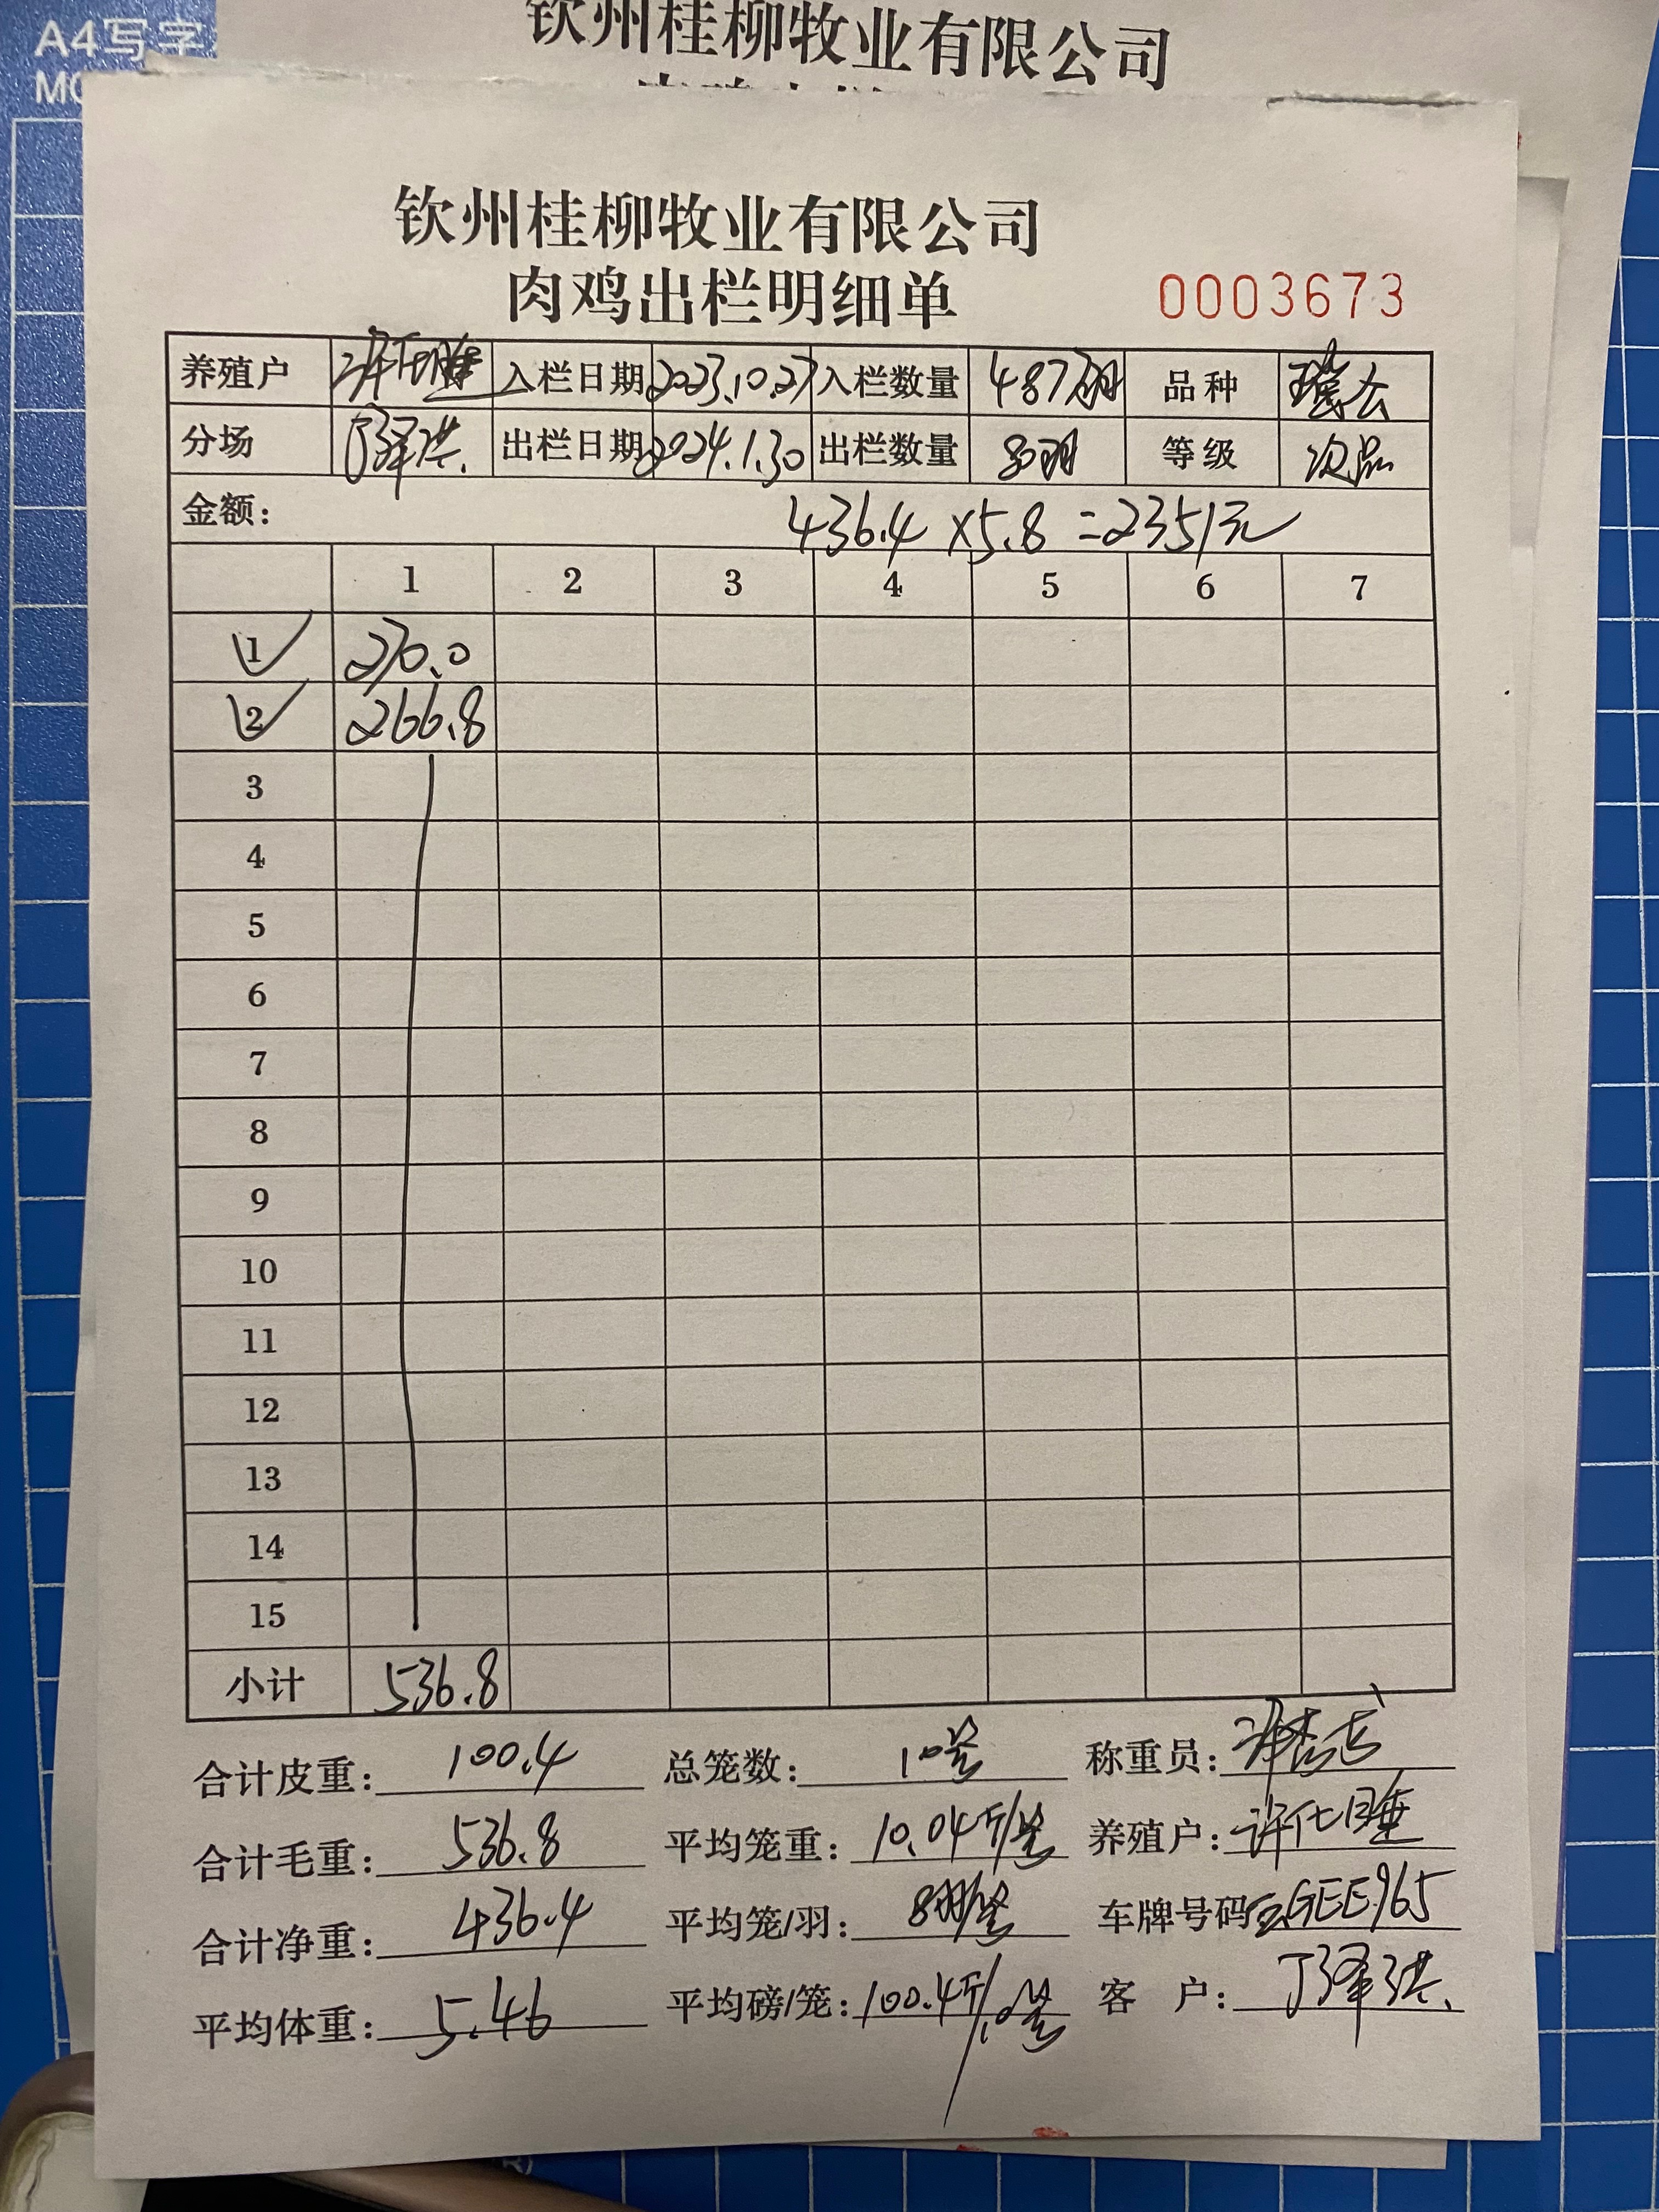 A4写字
钦州桂柳牧业有限公司
钦州桂柳牧业有限公司
肉鸡出栏明细单 0003673
养殖户 许化睡 入栏日期 2023.10.27 入栏数量 487羽 品种 瑶公
分场 丁泽洪 出栏日期 2024.1.30 出栏数量 80羽 等级 次品
金额: 436.4 ×5.8 =2351元
1 2 3 4 5 6 7
1 270.0
2 266.8
3
4
5
6
7
8
9
10
11
12
13
14
15
小计 536.8
合计皮重: 100.4 总笼数: 10笼 称重员:
合计毛重: 536.8 平均笼重: 10.04斤/笼 养殖户: 许化睡
合计净重: 436.4 平均笼/羽: 8羽/笼 车牌号码 GEE965
平均体重: 5.46 平均磅/笼: 100.4斤/10笼 客户: 丁泽洪